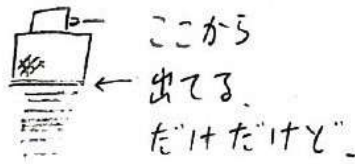 ここから
出てる、
だけだけど、